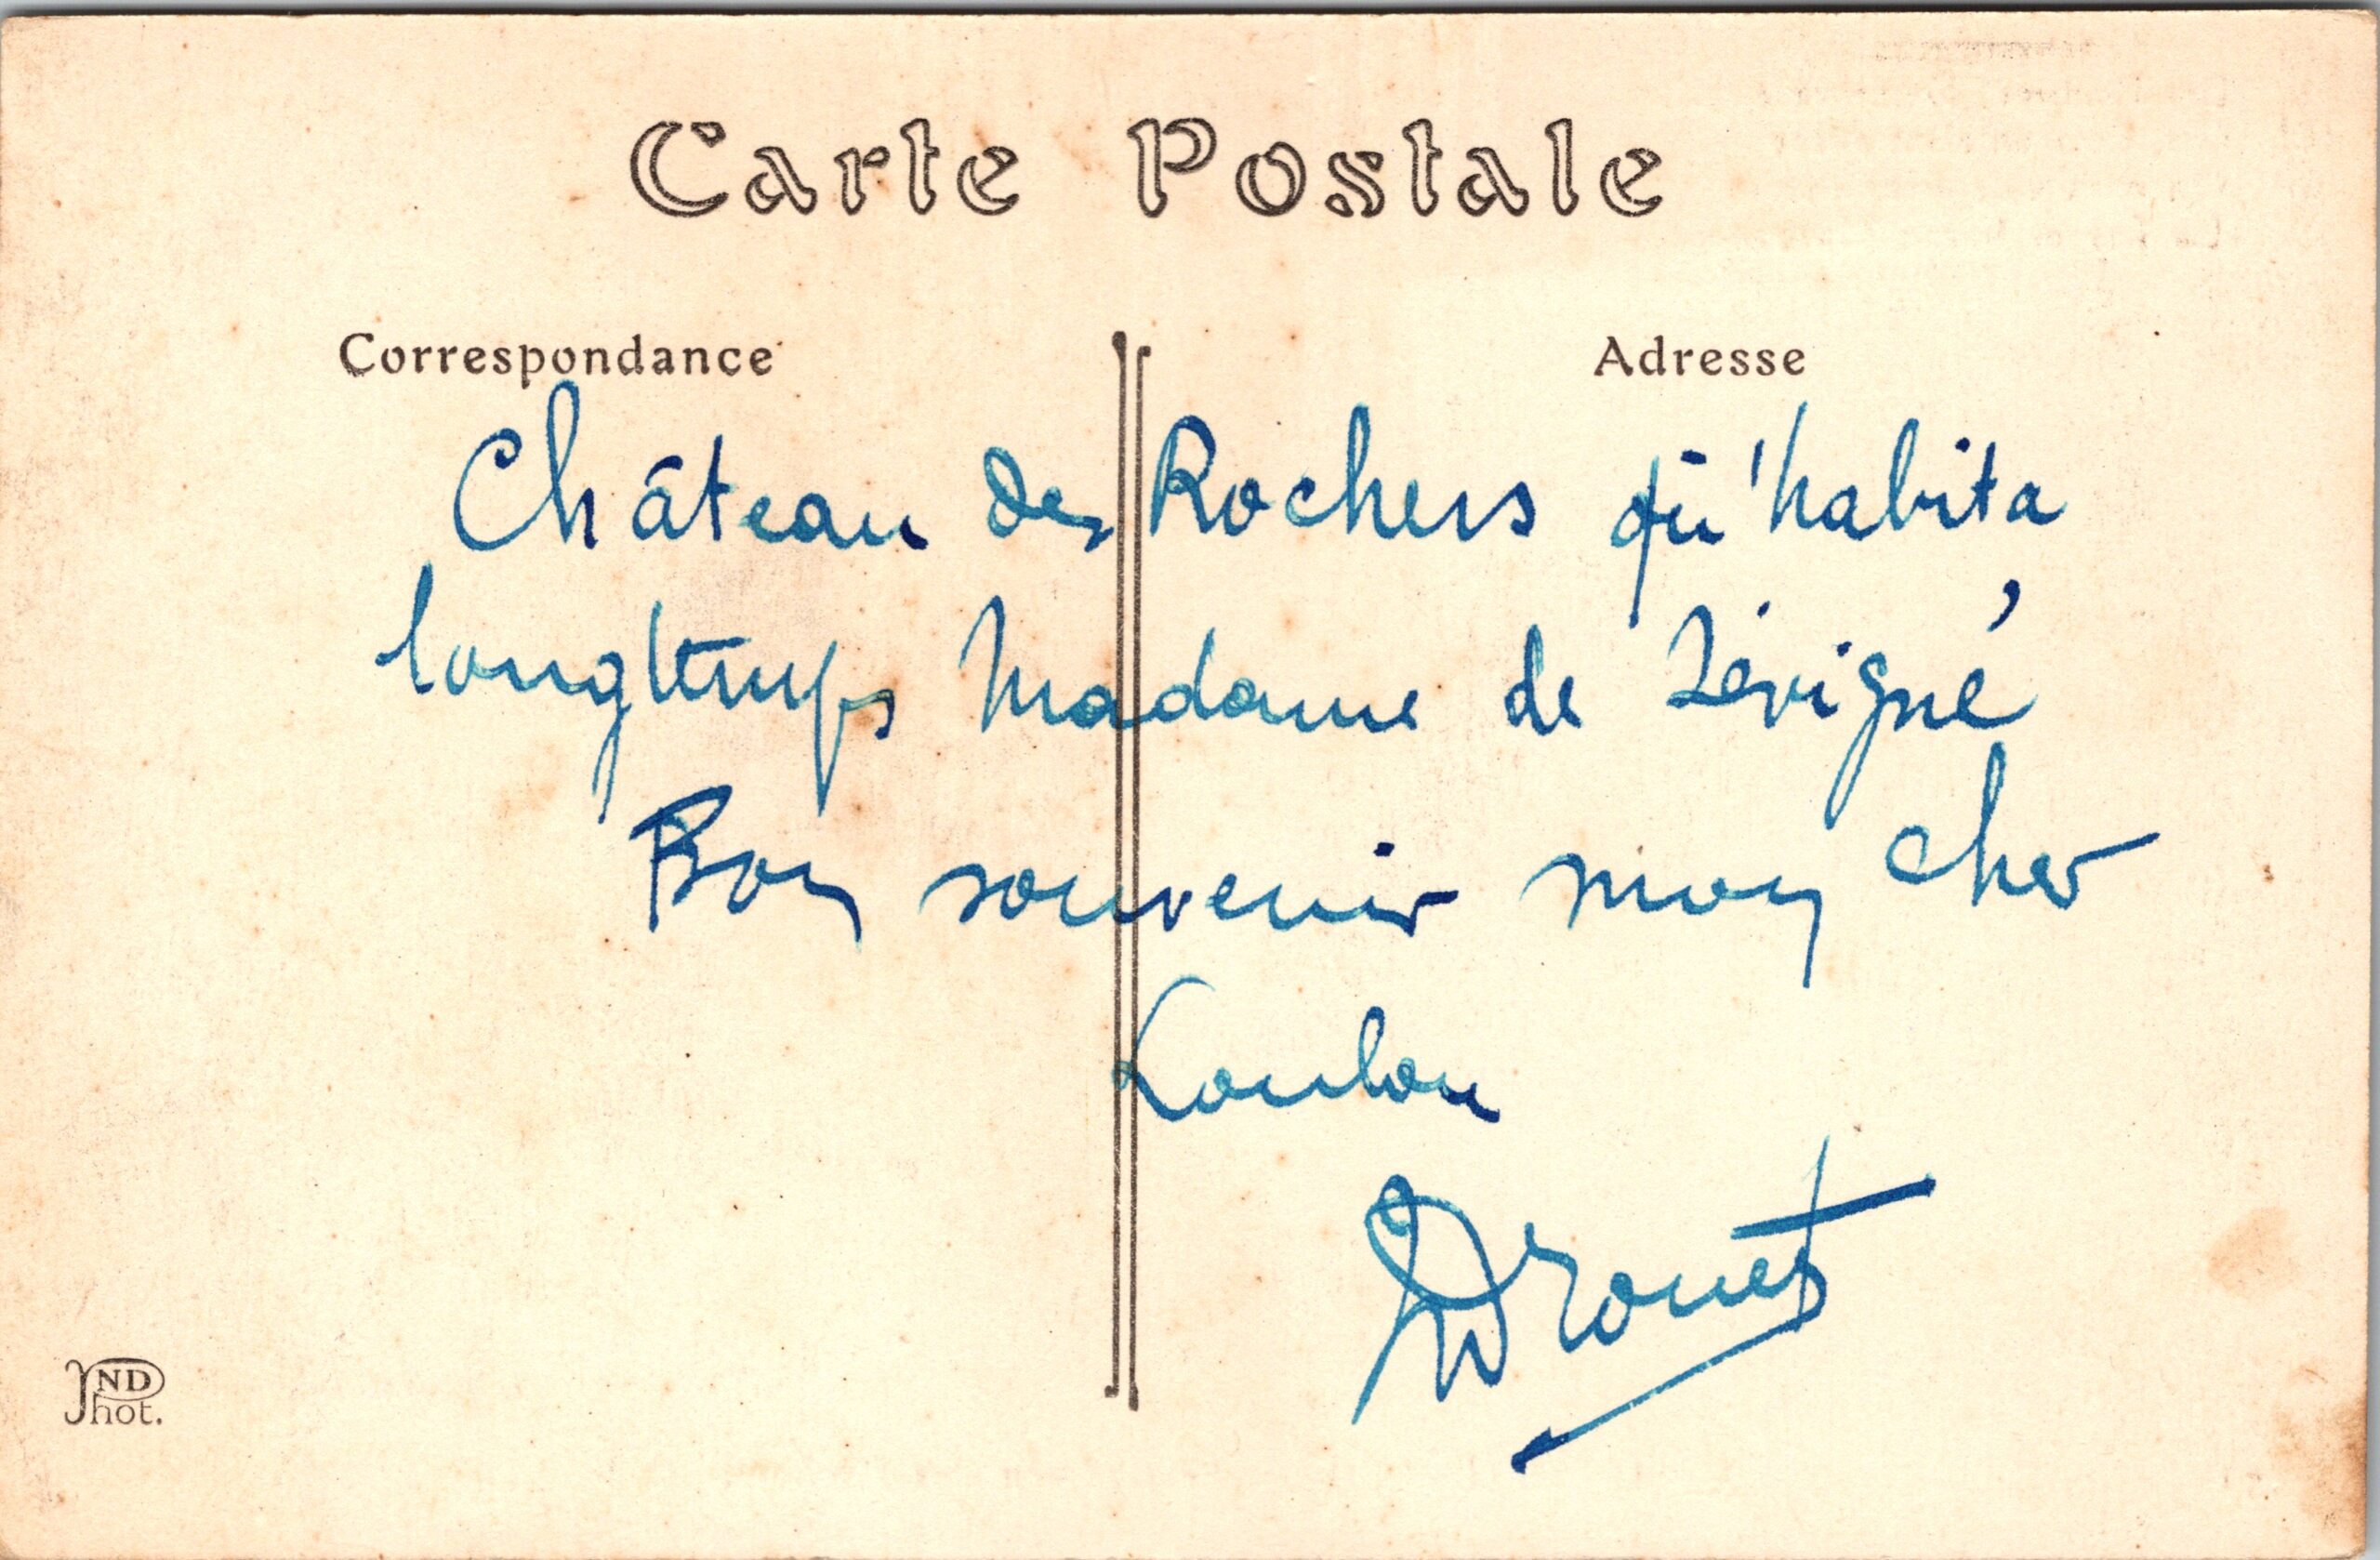 Carte Postale
Correspondance
Adresse
Château des Rochers qu'habita
longtemps Madame de Sévigné
Bon souvenir mon cher
Loulou
Drouet
ND
Phot.